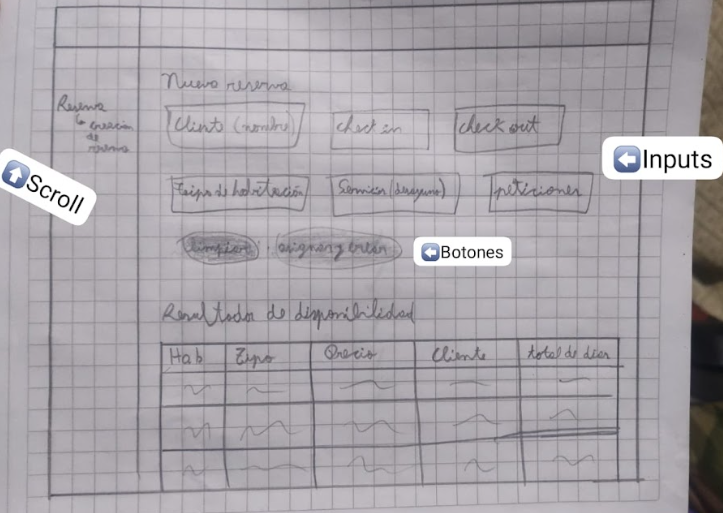 Nueva reserva
Reserva
creación
de
reserva
Cliente (nombre)
check in
check out
Inputs
Scroll
Taipo de habitación
Servicios (desayuno)
peticiones
limpiar
asignar y crear
Botones
Resultados de disponibilidad
Hab
Tipo
Precio
Cliente
total de dias